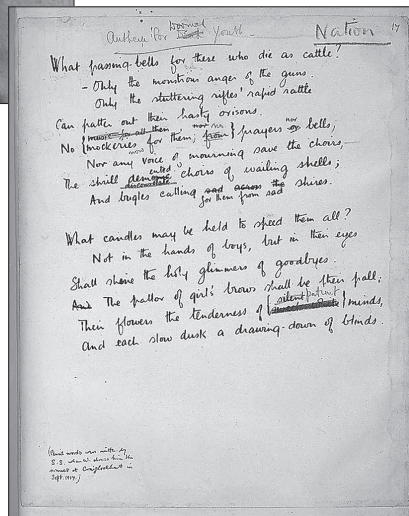 Anthem for Doomed Dead Youth.
Nation
17
What passing-bells for these who die as cattle?
- Only the monstrous anger of the guns.
Only the stuttering rifles' rapid rattle
Can patter out their hasty orisons.
music for all them nor nor
No mockeries for them; from prayers or bells,
Nor any voice of mourning save the choirs,-
The shrill demented choirs of wailing shells;
disconsolate
And bugles calling sad across the shires.
for them from sad
What candles may be held to speed them all?
Not in the hands of boys, but in their eyes
Shall shine the holy glimmers of goodbyes.
And The pallor of girls' brows shall be their pall;
Their flowers the tenderness of silent patient minds,
And each slow dusk a drawing-down of blinds.
(Pencil words were written by
S.S. when I showed him the
sonnet at Craiglockhart in
Sept. 1917.)